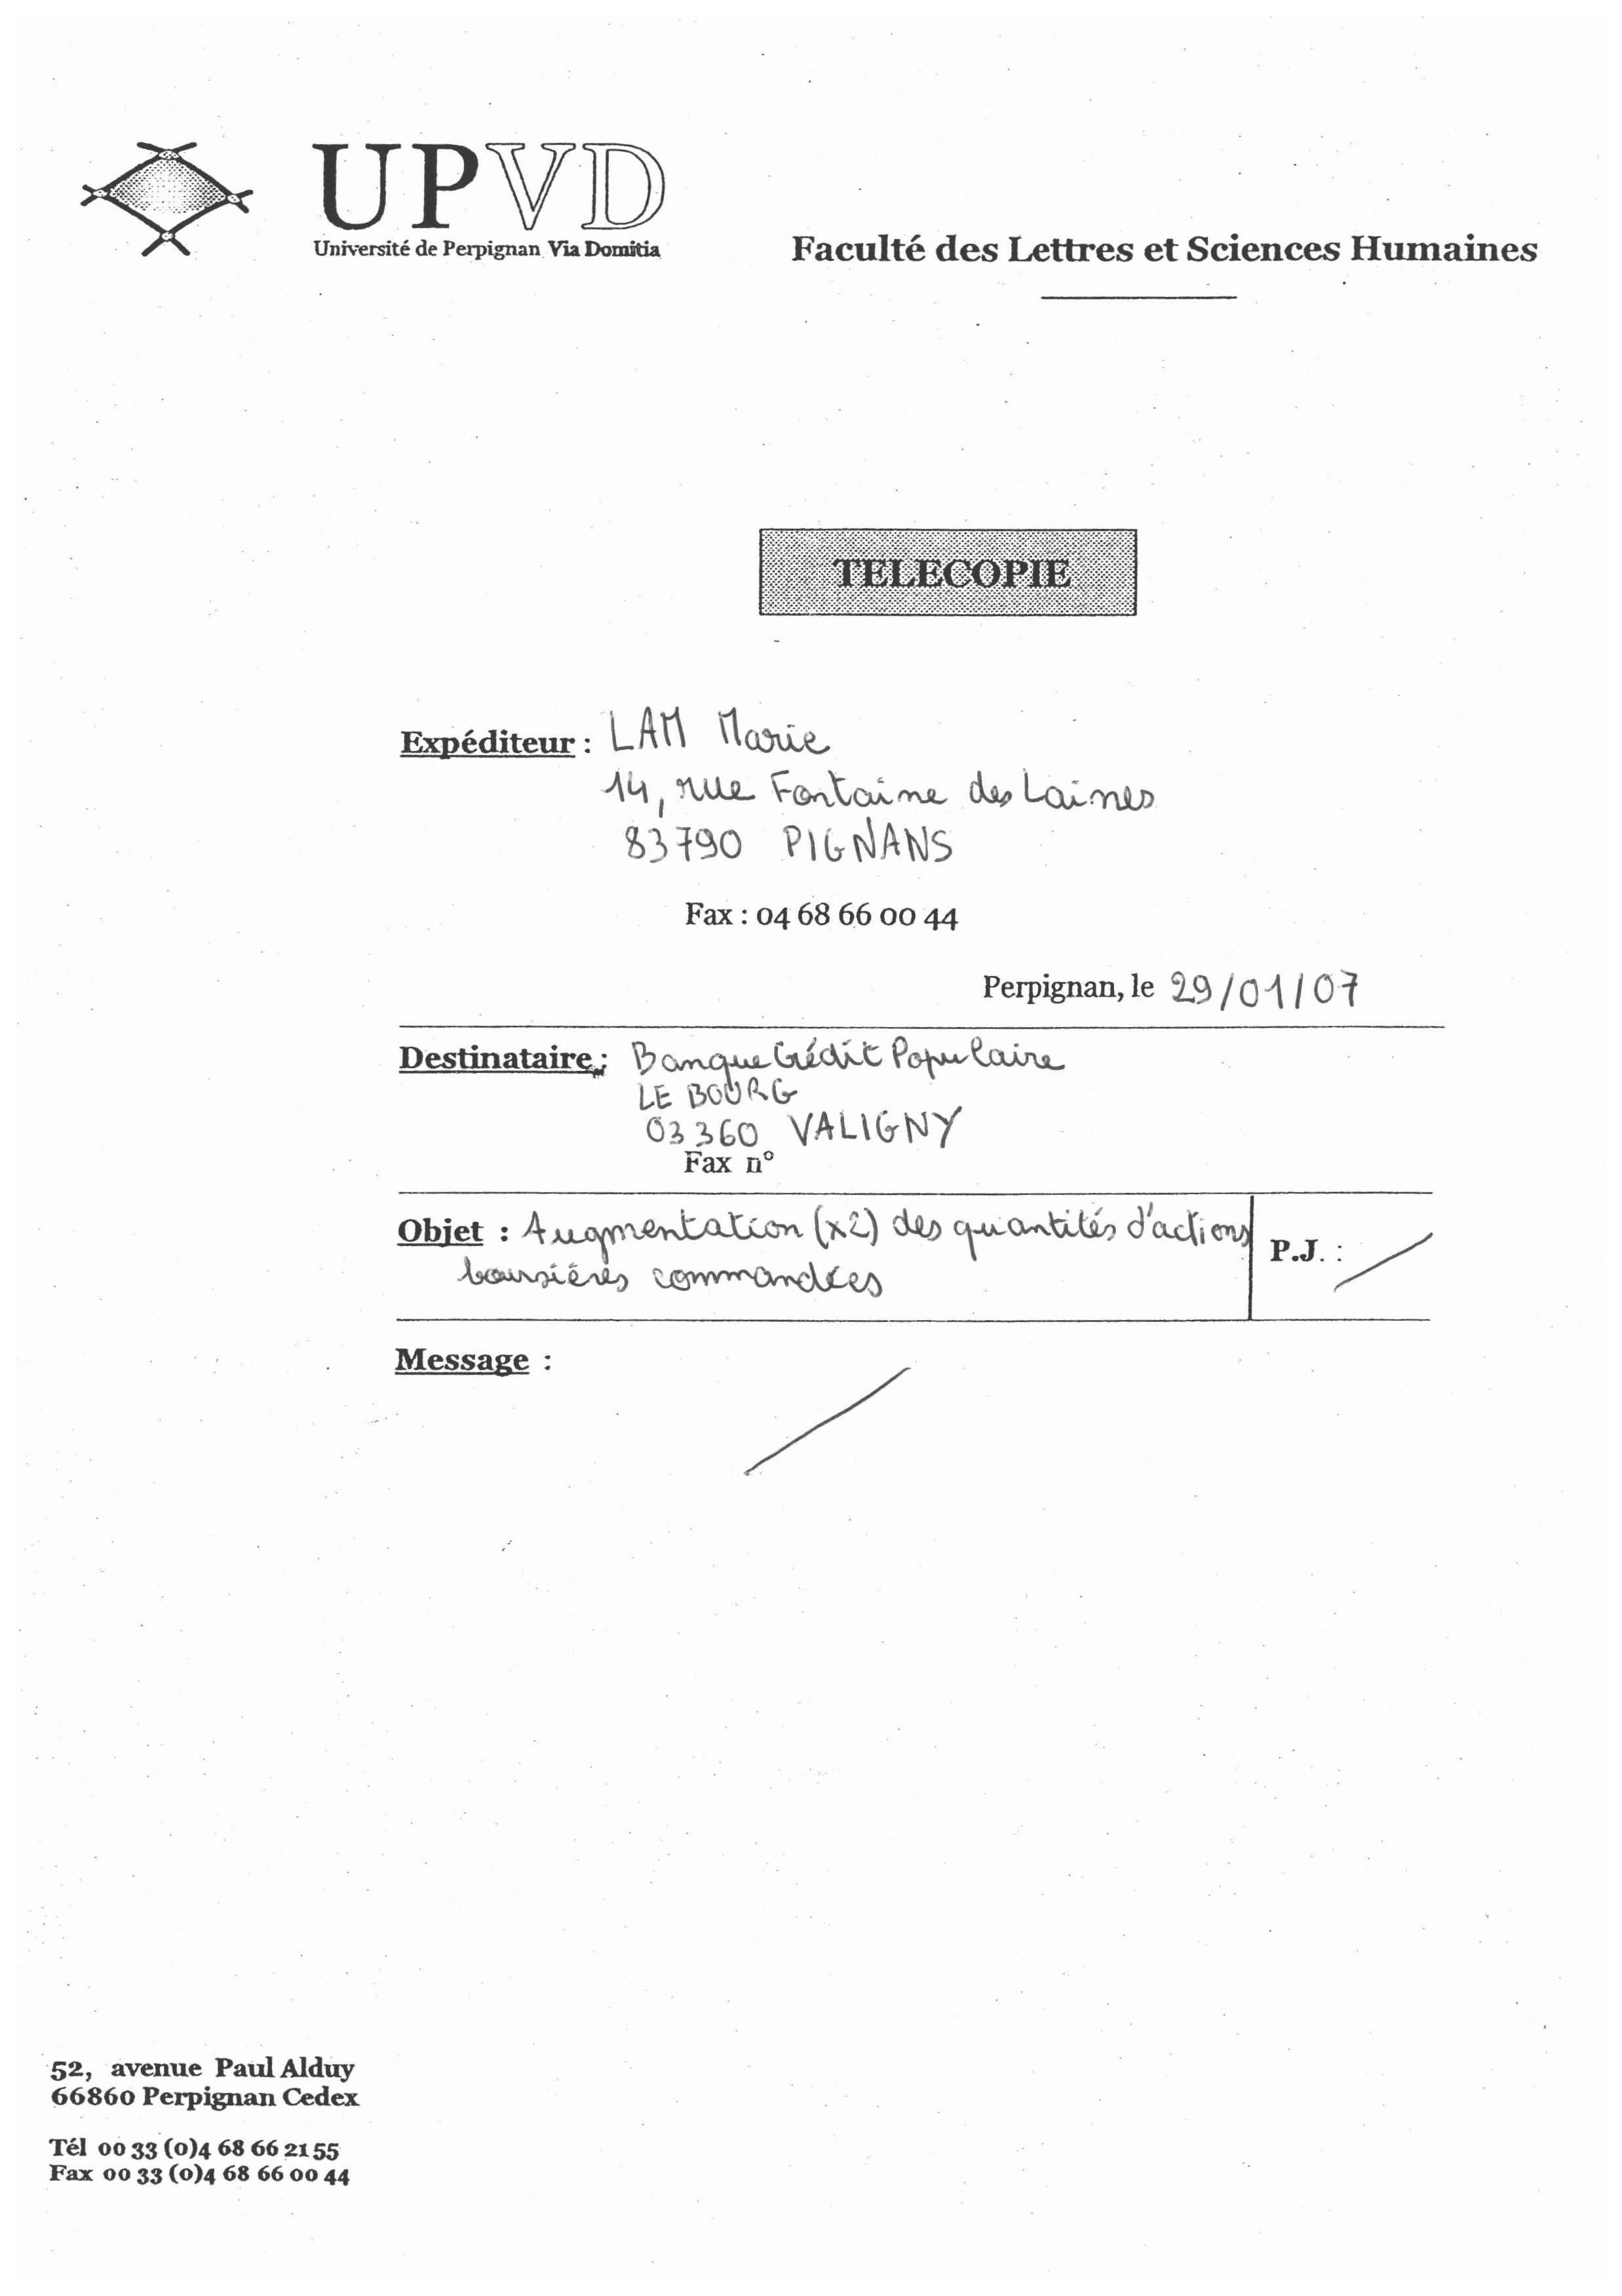 UPVD
Université de Perpignan Via Domitia
Faculté des Lettres et Sciences Humaines
TELECOPIE
Expéditeur : LAM Marie
14, rue Fontaine des Laines
83790 PIGNANS
Fax : 04 68 66 00 44
Perpignan, le 29/01/07
Destinataire : Banque Crédit Populaire
LE BOURG
03360 VALIGNY
Fax n°
Objet : Augmentation (x2) des quantités d'actions
boursières commandées
P.J. :
Message :
52, avenue Paul Alduy
66860 Perpignan Cedex
Tél 00 33 (0)4 68 66 21 55
Fax 00 33 (0)4 68 66 00 44